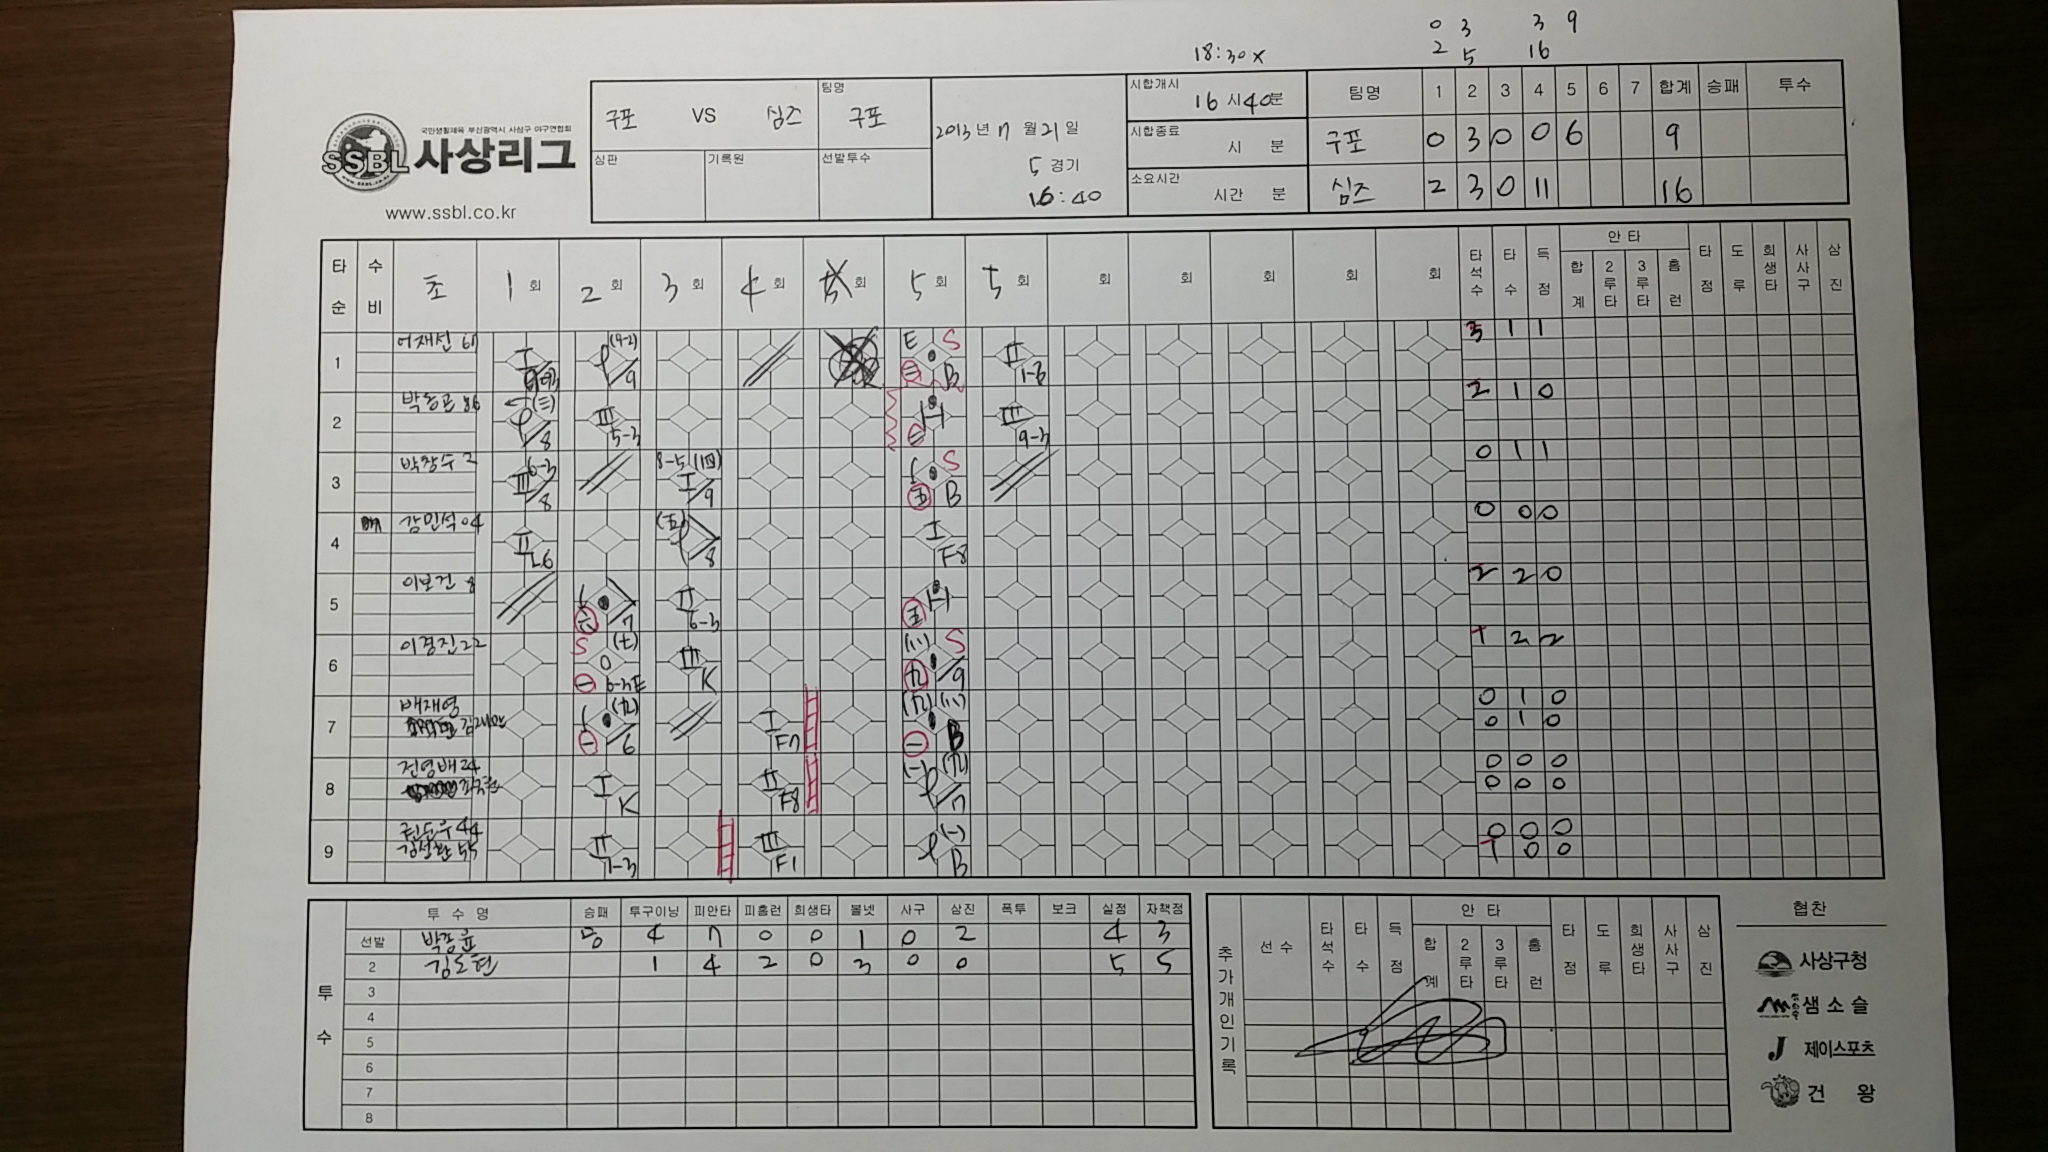 0 3 3 9
18:30x 2 5 16
국민생활체육 부산광역시 사상구 야구연합회
SSBL 사상리그
www.ssbl.co.kr
구포 VS 심즈
팀명
구포
심판 기록원 선발투수
2013년 7월 21일
5 경기
16:40
시합개시 16 시 40분
시합종료 시 분
소요시간 시간 분
팀명 1 2 3 4 5 6 7 합계 승패 투수
구포 0 3 0 0 6 9
심즈 2 3 0 11 16
타순 수비 초 1 회 2 회 3 회 4 회 회 5 회 5 회 회 회 회 회 회 타석수 타수 득점 안타 합계 2루타 3루타 홈런 타점 도루 희생타 사사구 삼진
1 어재선 I (9-2) 9 E S B II 1-3 3 1 1
2 8 III 5-3 III 9-3 2 1 0
3 박창수 2 6-3 III 8 8-5 I 9 S B 0 1 1
4 강민석 04 II L6 8 I F8 0 0 0
5 이보건 8 7 II 6-3 2 2 0
6 이경진 22 S 6-3E III K S 9 1 2 2
7 배재영 6 I F7 B 0 1 0
0 1 0
8 전영배 24 I K II F8 7 0 0 0
0 0 0
9 44 II 1-3 III F1 B 0 0 0
김성환 55 1 0 0
투수 투수명 승패 투구이닝 피안타 피홈런 희생타 볼넷 사구 삼진 폭투 보크 실점 자책점
선발 박종윤 4 7 0 0 1 0 2 4 3
2 김도현 1 4 2 0 3 0 0 5 5
3
4
5
6
7
8
추가개인기록 선수 타석수 타수 득점 안타 합계 2루타 3루타 홈런 타점 도루 희생타 사사구 삼진
협찬
사상구청
샘소슬
제이스포츠
건왕